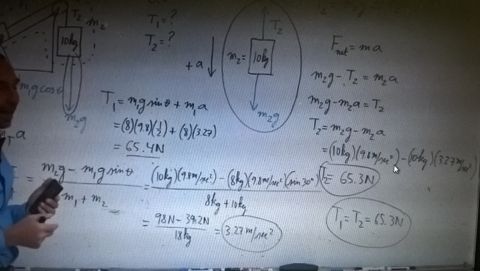 T₁ = ?
T₂ = ?
m₂
10kg
m₁g cosθ
m₂g
+a
T₂
m₂ = 10kg
m₂g
F_net = ma
m₂g - T₂ = m₂a
m₂g - m₂a = T₂
T₂ = m₂g - m₂a
= (10kg)(9.8m/sec²) - (10kg)(3.27m/sec²)
T₂ = 65.3N
T₁ = T₂ = 65.3N
T₁ = m₁g sinθ + m₁a
= (8)(9.8)(½) + (8)(3.27)
= 65.4N
= m₂g - m₁g sinθ / m₁ + m₂ = (10kg)(9.8m/sec²) - (8kg)(9.8m/sec²)(sin30°) / 8kg + 10kg
= 98N - 39.2N / 18kg = 3.27m/sec²